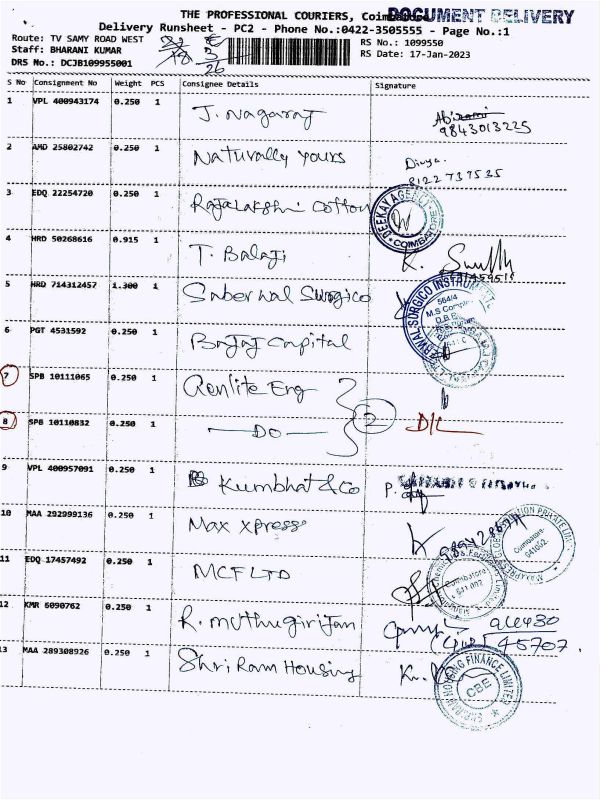 THE PROFESSIONAL COURIERS, Coimbatore
DOCUMENT DELIVERY
Delivery Runsheet - PC2 - Phone No.:0422-3505555 - Page No.:1
Route: TV SAMY ROAD WEST
RS No.: 1099550
Staff: BHARANI KUMAR
RS Date: 17-Jan-2023
DRS No.: DCJB109955001
26
S No Consignment No Weight PCS Consignee Details Signature
1 VPL 400943174 0.250 1 J. Nagaraj
9843013225
2 AMD 25802742 0.250 1 Naturally yours Divya.
3 EDQ 22254720 0.250 1 Rajalakshi Cotton DEEKAY AGENCI COIMBATORE
4 HRD 50268616 0.915 1 T. Balaji K.
5 HRD 714312457 1.300 1 Saberwal Surgico
564/4
6 PGT 4531592 0.250 1 Bajaj Capital
7 SPB 10111065 0.250 1 Renlite Eng
2
8 SPB 10110832 0.250 1 DO D/L
9 VPL 400957091 0.250 1 Kumbhat & Co P.
10 MAA 292999136 0.250 1 Max xpress
Coimbatore-641052.
11 EDQ 17457492 0.250 1 MCF LTD
Coimbatore
12 KMR 6090762 0.250 1 R. Muthugirijan
45707.
13 MAA 289308926 0.250 1 Shri Ram Housing
HOUSING FINANCE LIMITED CBE